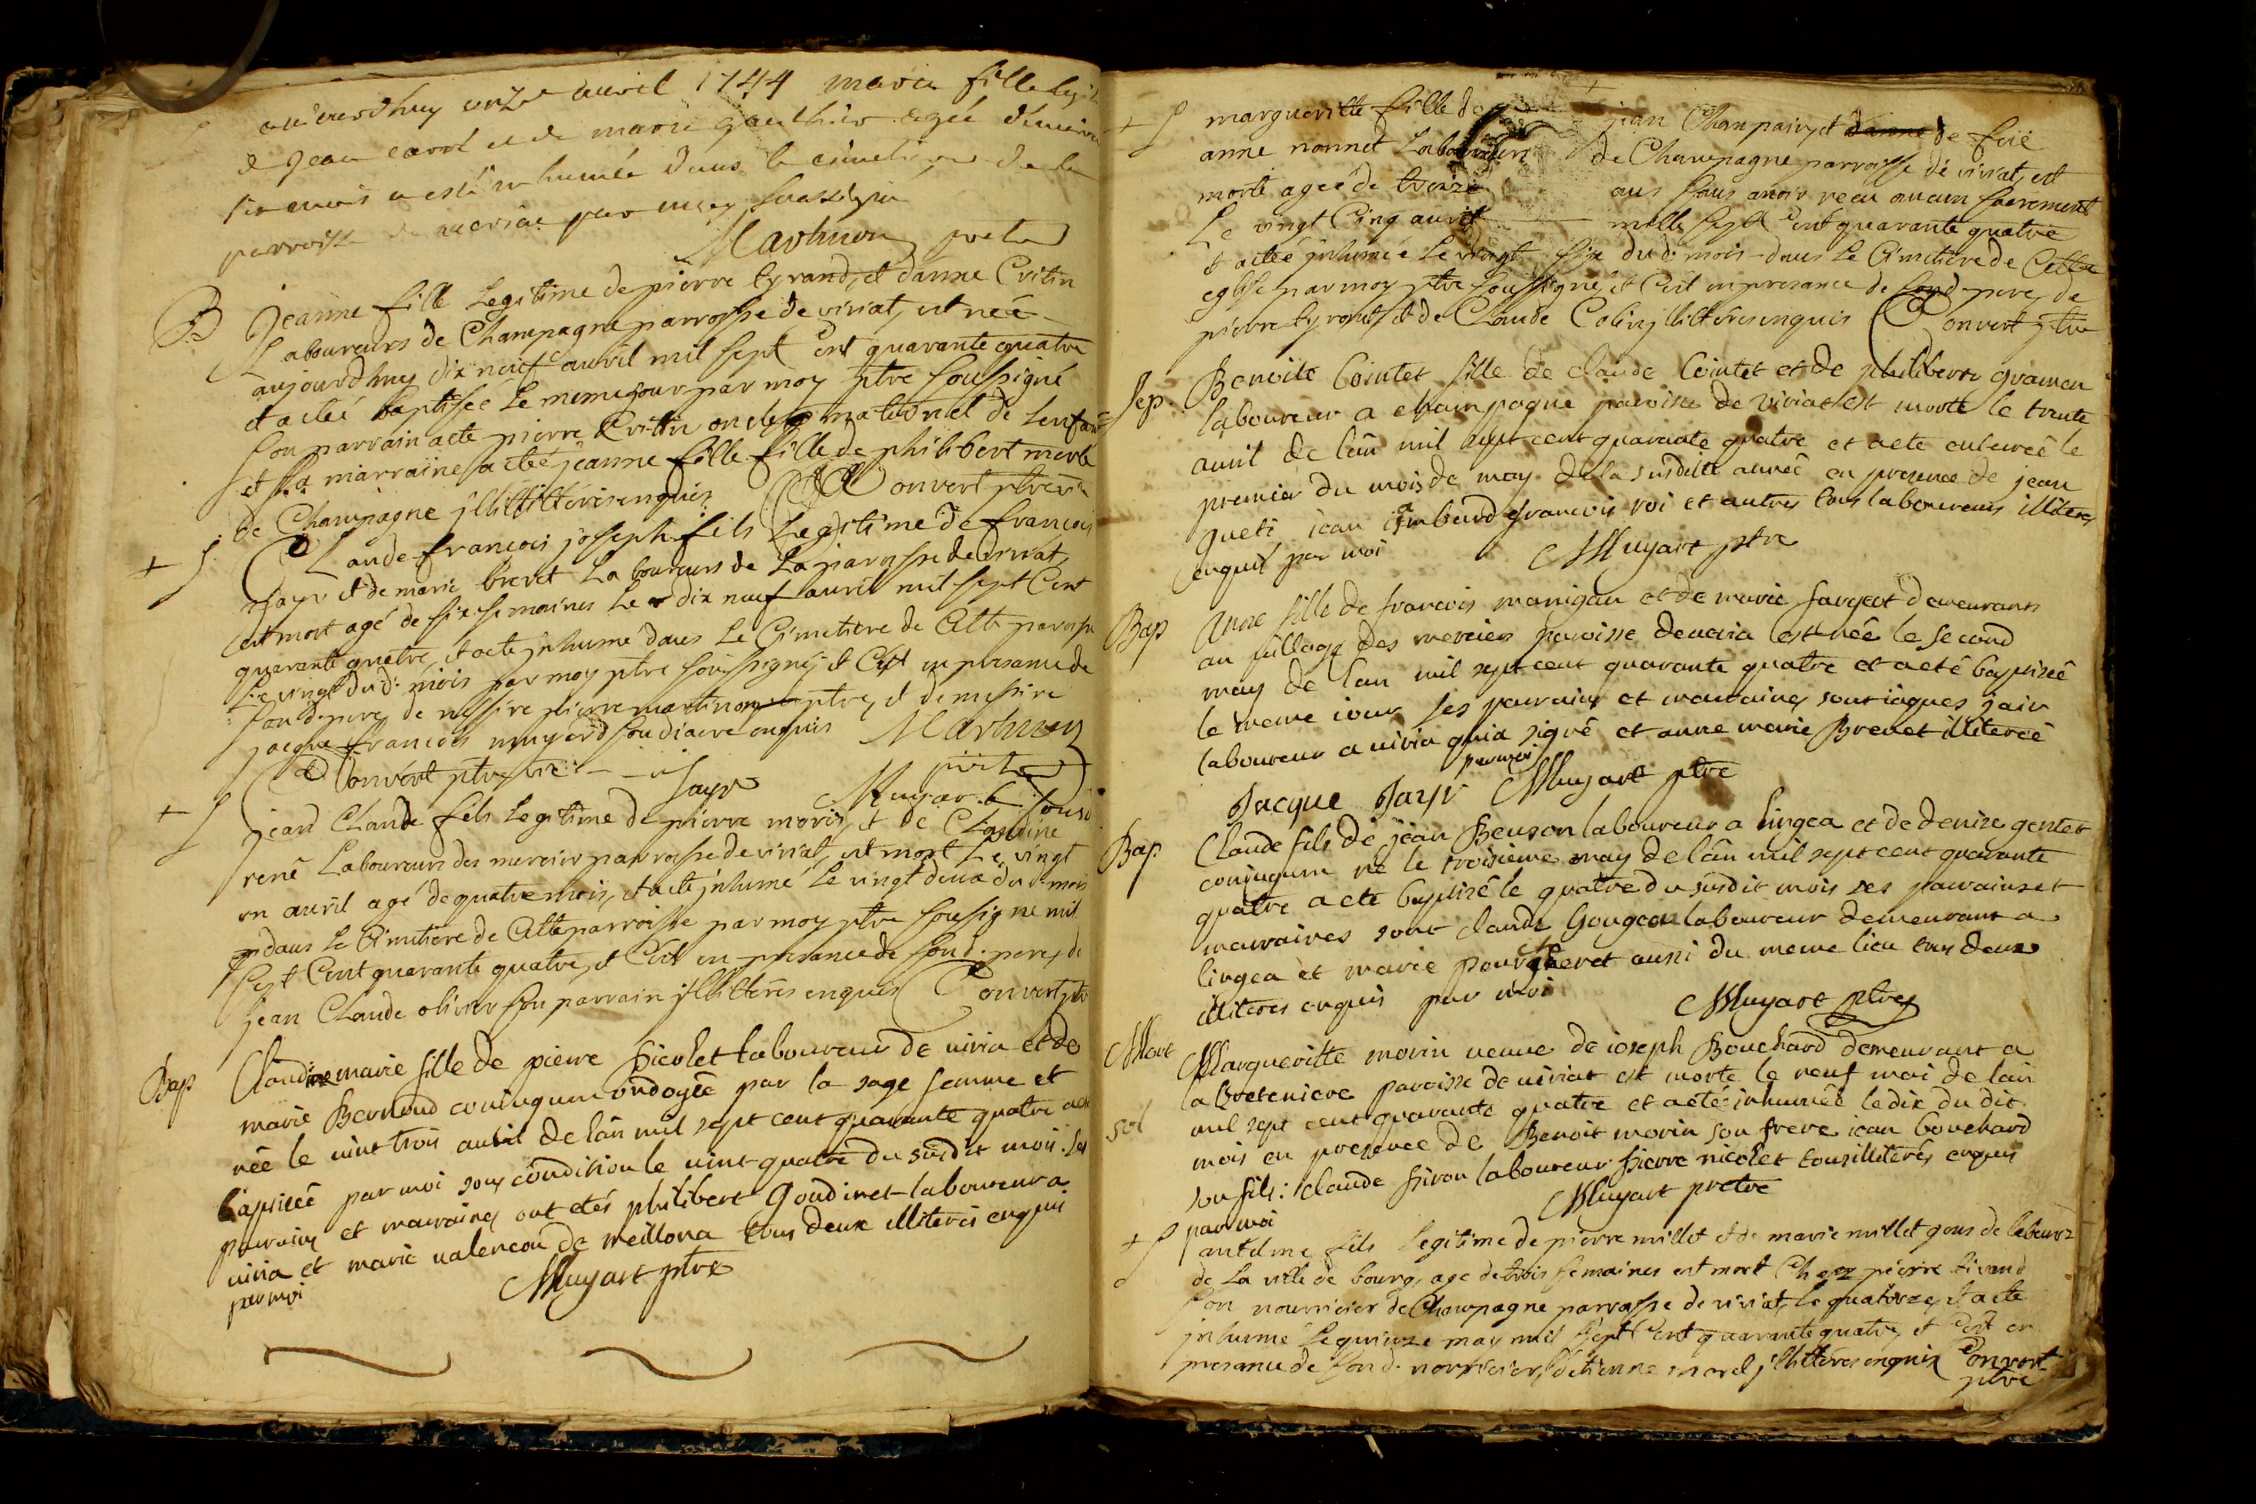 aujourdhuy onze avril 1744 marie fille
de Jean carrel et de marie gauthier agée
six mois a esté inhumée dans le cimetiere de la
parroisse de par moy soussigné
Martinon pretre
B Jeanne fille Legitime de pierre tyrand, et d'anne Critin
Laboureurs de Champagne parroisse de viriat, est née
aujourdhuy dix neuf auril mil sept Cent quarante quatre
et a eté baptisée Le meme jour par moy ptre soussigné
son parrain a eté pierre Critin oncle maternel de Lenfant
et sa marraine a eté jeanne fille fille de philibert merle
de Champagne jllittérés enquis Convert ptre
+ S Claude françois joseph fils Legitime de françois
jayr et de marie brevet Laboureurs de La parroisse de viriat,
est mort agé de six semaines Le dix neuf auril mil sept Cent
quarante quatre, et a eté jnhumé dans Le Cimetiere de Cette parroisse
Le vingt dud. mois par moy ptre soussigné, et C'est en presance de
son d. pere, de messire pierre martinon ptre, et de messire
jacque françois muyard soudiacre enquis Martinon
Convert ptre vre jayr Muyart pretre
sousd
+ S jean Claude fils Legitime de pierre morin, et de Claudine
rené Laboureurs des mercier parroisse de viriat, est mort Le vingt
un auril agé de quatre mois, et a eté jnhumé Le vingt deux du d. mois
dans Le Cimitiere de Cette parroisse par moy ptre soussigné mil
sept Cent quarante quatre, et C'est en presance de son d. pere, de
jean Claude olivier son parrain jllittérés enquis Convert ptre
Bap Claudine marie fille de pierre Picolet laboureur de viria et de
marie Bernoud conjugum ondoyée par la sage femme et
née le vint trois auril de l'an mil sept cent quarante quatre a eté
baptisée par moi sous condition le vint quatre du susdit mois. Ses
parrains et maraines ont etés philibert Goudinet laboureur a
viria et marie valencon de meillona tous deux illiterés enquis
par moi Muyart ptre
+ S marguerite fille de jean Champain, et de fuë
anne nonnet Laboureurs de Champagne parroisse de viriat, est
morte ageé de treize ans sans avoir reçu aucun sacrement
Le vingt Cinq auril mille sept Cent quarante quatre
et a eté jnhumée Le vingt six du d. mois dans Le Cimitiere de Cette
eglise par moy ptre soussigné, et C'est en presance de son d. pere, de
pierre tyrand, et de Claude Colin jllittérés enquis Convert ptre
Sep. Benoite Cointet fille de claude Cointet et de philiberte
laboureur a champagne paroisse de Viriat est morte le trente
auril de l'an mil sept cent quarante quatre et a eté enterreé le
premier du mois de may de la susditte année en presence de jean
gueti jean imbard françois roi et autres tous laboureurs illiterés
enquis par moi Muyart ptre
Bap Anne fille de francois manigan et de marie fargeot demeurants
au village des merciers paroisse de viria est née le second
may de l'an mil sept cent quarante quatre et a eté baptiseé
le meme jour ses parains et maraines sont jaques jair
laboureur a viria qui a signé et anne marie Brevet illitereé
par moi
Jacque Jayr Muyart ptre
Bap Claude fils de jean Beuson laboureur a lingea et de denise gentet
conjugum né le troisieme may de l'an mil sept cent quarante
quatre a eté baptisé le quatre du susdit mois ses parains et
maraines sont claude Gougeon laboureur demeurant a
lingea et marie aussi du meme lieu tous deux
illiterés enquis par moi Muyart ptre
Mort Margueritte morin veuve de joseph Bouchard demeurant a
la breteniere paroisse de viriat est morte le neuf mai de l'an
sol mil sept cent quarante quatre et a eté inhumeé le dix du dit
mois en presence de Benoit morin son frere jean bouchard
son fils: claude Piron laboureur pierre nicolet tous illiterés enquis
par moi Muyart pretre
+ S antelme fils Legitime de pierre millet et de marie millet gens de labeurs
de La ville de bourg, agé de trois semaines est mort Chez pierre tirand
son nourricier de Champagne parroisse de viriat, le quatorze, et a eté
jnhumé Le quinze may mil sept Cent quarante quatre, et C'est en
presance de son d. nourricier, d'etienne morel jllittérés enquis Convert
ptre